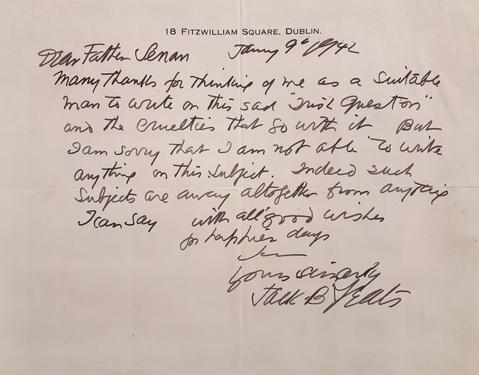 18 FITZWILLIAM SQUARE, DUBLIN.
Dear Father Senan Janry 9th 1942
Many thanks for thinking of me as a suitable
man to write on this sad "Irish Question"
and the cruelties that go with it But
I am sorry that I am not able to write
anything on this subject. Indeed such
subjects are away altogether from anything
I can say with all good wishes
for happier days
I am
yours sincerely
Jack B Yeats